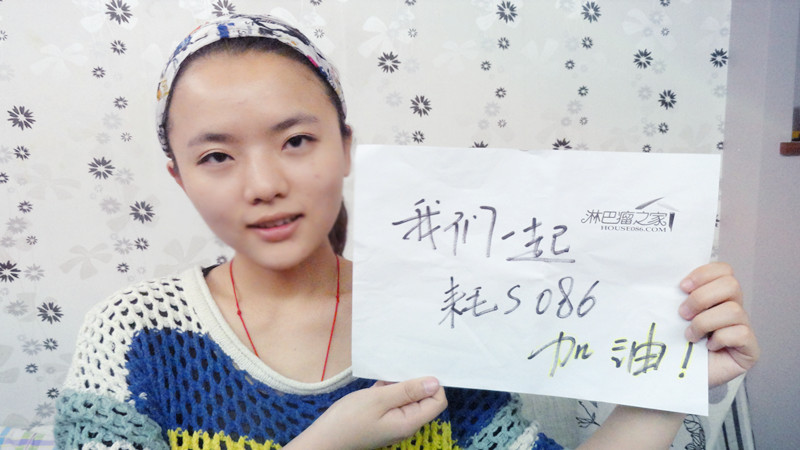 淋巴瘤之家
HOUSE086.COM
我们一起
耗S 086
加油！